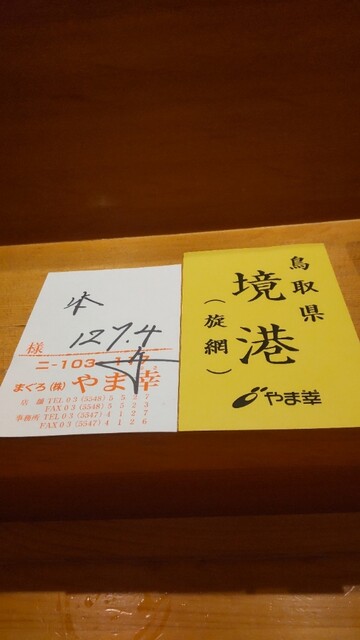 127.4
様
ニ-103
まぐろ(株)やま幸
店舗 TEL 03 (5548) 5527
FAX 03 (5548) 5523
事務所 TEL 03 (5547) 4127
FAX 03 (5547) 4126
鳥取県
境港
(旋網)
やま幸